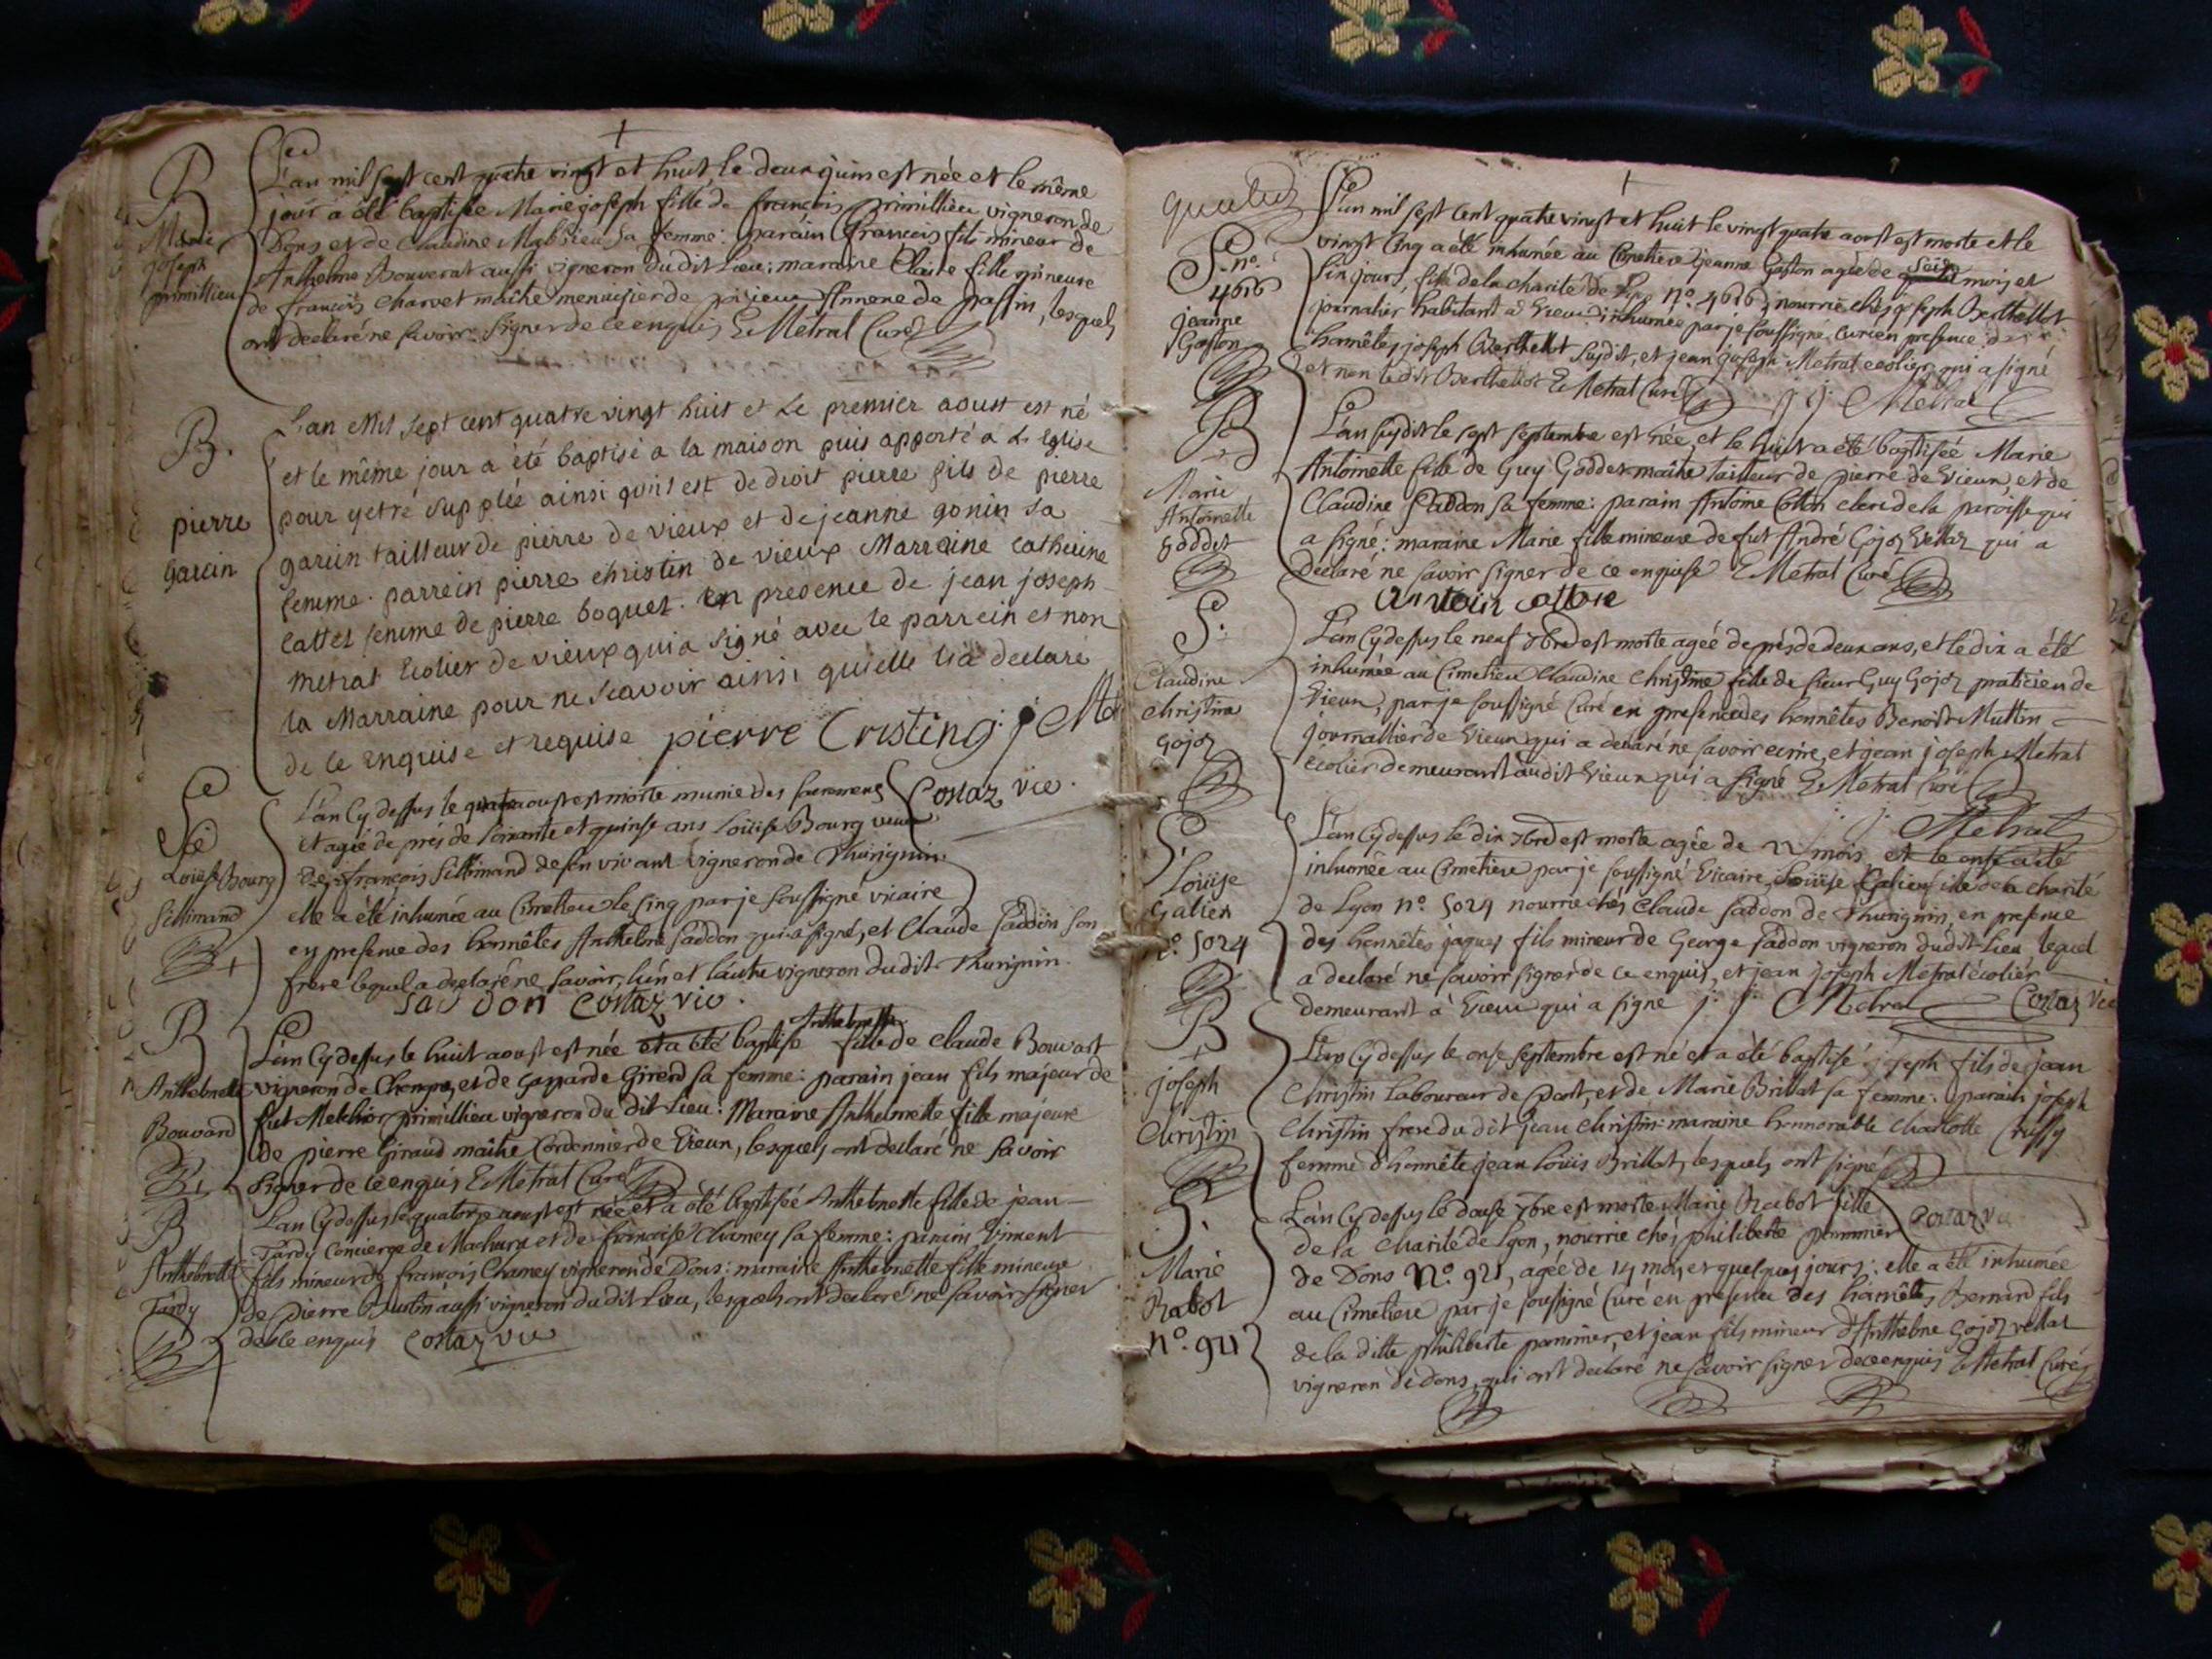 B
Marie
joseph
primillieu
L'an mil sept cent quatre vingt et huit, le deux juin est née et le même
jour a été baptisée Marie joseph fille de françois primillieu vigneron de
Dons et de Claudine sa femme: parain françois fils mineur de
Anthelme Bouverat aussi vigneron du dit Lieu; maraine Claire fille mineure
de françois Charvet maître menuisier de Annexe de passin, lesquels
ont declaré ne savoir signer de ce enquis E Metral Curé
B.
pierre
garcin
L'an Mil sept cent quatre vingt huit et Le premier aoust est né
et le même jour a été baptisé a la maison puis apporté a L'Eglise
pour yetre supplée ainsi qu'il est de droit pierre fils de pierre
garcin tailleur de pierre de vieux et de jeanne gonin sa
femme. parrein pierre christin de vieux Marraine catherine
cattet femme de pierre boquet. en presence de jean joseph
metrat Ecolier de vieux qui a signé avec le parrein et non
la Marraine pour ne scavoir ainsi qu'elle l'a declaré
de ce enquise et requise pierre Cristin j: j Met
S.
Louise Bourg
Sillimand
L'an Cy dessus le quatre aoust est morte munie des sacremens Costaz vic.
et agée de près de soixante et quinse ans Loüise Bourg veuve
de françois Sillimand de son vivant vigneron de Thurignin
elle a été inhumée au Cimetiere le Cinq par je soussigné vicaire
en presence des honnêtes Anthelme faddon qui a signé, et Claude faddon son
frere lequel a declaré ne savoir, l'un et l'autre vigneron du dit Thurignin.
faddon Costaz vic.
B
Anthelmette
Bouvard
L'an Cy dessus le huit aoust est née et a été baptisé Anthelmette fille de Claude Bouvart
vigneron de Chempos, et de Gasparde Girerd sa femme: parain jean fils majeur de
fut Melchior primillieu vigneron du dit Lieu: Maraine Anthelmette fille majeure
de pierre Giraud maître Cordonnier de Vieux, lesquels ont declaré ne savoir
signer de ce enquis E Metrat Curé
B
Anthelmette
Tardy
L'an Cy dessus le quatorze aoust est née et a été baptisée Anthelmette fille de jean
Tardy Concierge de Machura et de françoise Chamey sa femme: parain Viment
fils mineur de françois Chamey vigneron de Dons: maraine Anthelmette fille mineure
de pierre aussi vigneron du dit Lieu, lesquels ont declaré ne savoir signer
de ce enquis Costaz vic
S.
n°.
4616
jeanne
Gaston
L'an mil sept Cent quatre vingt et huit le vingt quatre aoust est morte et le
vingt Cinq a été inhumée au Cimetiere jeanne Gaston agée de seize mois et
six jours, fille de la charité de Lyon n°. 4616, nourrie chés joseph Berthellet
journalier habitant à Vieux: inhumée par je soussigné Curé en presence des
honnêtes joseph Berthellet susdit, et jean joseph Metrat ecolier qui a signé
et non le dit Berthellet E Metrat Curé j. j. Metrat
B
Marie
Antoinette
goddet
L'an susdit le sept septembre est née, et le huit a été baptisée Marie
Antoinette fille de Guy Goddet maître tailleur de pierre de Vieux, et de
Claudine faddon sa femme: parain Antoine Cotton clerc de la paroisse qui
a signé: maraine Marie fille mineure de fut André Gojoz Vellaz qui a
declaré ne savoir signer de ce enquise E Metrat Curé
Antoin cotton
S.
Claudine
Christine
gojoz
L'an Cy dessus le neuf 7bre est morte agée de près de deux ans, et le dix a été
inhumée au Cimetiere Claudine Christine fille de sieur Guy Gojoz praticien de
Vieux, par je soussigné Curé en presence des honnêtes Benoist Muttin
journallier de Vieux qui a declaré ne savoir ecrire, et jean joseph Metrat
écolier demeurant audit Vieux qui a signé E Metrat Curé
j. j. Metrat
S.
Loüise
Galien
n°. 5024
L'an Cy dessus le dix 7bre est morte agée de 22 mois, et le onse a été
inhumée au Cimetiere par je soussigné Vicaire, Loüise Galien fille de la charité
de Lyon n°. 5024 nourrie chés Claude faddon de Thurignin, en presence
des honnêtes jaques fils mineur de George faddon vigneron du dit Lieu lequel
a declaré ne savoir signer de ce enquis, et jean joseph Metrat écolier
demeurant à Vieux qui a signé j. j. Metrat Costaz Vic
B
joseph
Christin
L'an Cy dessus le onse septembre est né et a été baptisé joseph fils de jean
Christin Laboureur de Dont, et de Marie Brillat sa femme: parain joseph
Christin frere du dit jean Christin: maraine honnorable Charlotte
femme d'honnête jean Loüis Brillat, lesquels ont signé
S.
Marie
Rabot
n°. 921
L'an Cy dessus le douse 7bre est morte Marie Rabot fille Costaz vic
de la charité de Lyon, nourrie chés philiberte pommier
de Dons n°. 921, agée de 14 mois et quelques jours: elle a été inhumée
au Cimetiere par je soussigné Curé en presence des honnêtes Bernard fils
de la ditte philiberte pommier, et jean fils mineur d'Anthelme Gojoz vellat
vigneron de dons, qui ont declaré ne savoir signer de ce enquis E Metrat Curé